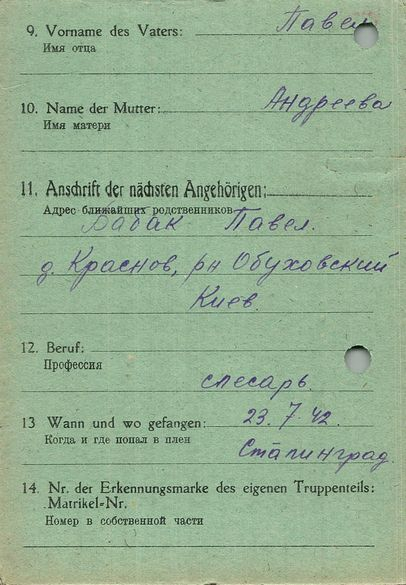 9. Vorname des Vaters: Павел
Имя отца
10. Name der Mutter: Андреева
Имя матери
11. Anschrift der nächsten Angehörigen:
Адрес ближайших родственников
Бабак Павел.
д. Краснов, рн Обуховский
Киев.
12. Beruf:
Профессия
слесарь.
13 Wann und wo gefangen: 23.7.42.
Когда и где попал в плен
Сталинград.
14. Nr. der Erkennungsmarke des eigenen Truppenteils:
Matrikel=Nr.
Номер в собственной части